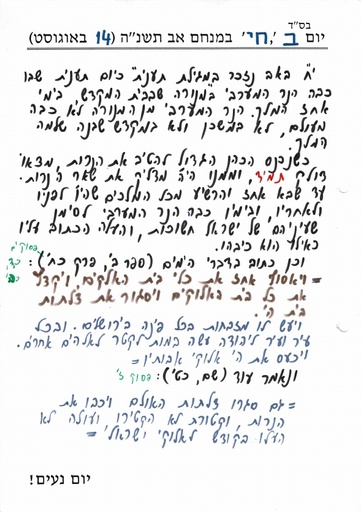 בס"ד
יום ב', 'חי' במנחם אב תשנ"ה (14 באוגוסט)
י"ח באב נזכר במגילת תענית כיום תענית שבו
כבה הנר המערבי במנורה שבבית המקדש בימי
אחז המלך. הנר המערבי מן המנורה לא כבה
מעולם, לא במשכן ולא במקדש שבנה שלמה
המלך.
כשנכנס הכהן הגדול להטיב את הנרות, מצאו
דולק תמיד, וממנו היה מדליק את שאר הנרות.
עד שבא אחז והרשיע מכל המלכים שהיו לפניו
ולאחריו, ובימיו כבה הנר המערבי לסימן
שעיניהם של ישראל חשוכות, והעלה הכתוב עליו
כאילו הוא כיבהו.
וכן כתוב בדברי הימים (ספר ב', פרק כח'): פסוקים כד, כה
=ויאסוף אחז את כלי בית האלקים ויקצץ
את כל בית האלוקים ויסגור את דלתות
בית ה'.
ויעש לו מזבחות בכל פינה בירושלים. ובכל
עיר ועיר ליהודה עשה במות לקטר לאלהים אחרים.
ויכעס את ה' אלוקי אבותיו=
ונאמר עוד (שם, כט'): פסוק ז'
=גם סגרו דלתות האולם ויכבו את
הנרות, וקטורת לא הקטירו, ועולה לא
העלו בקודש לאלוקי ישראל=
יום נעים!